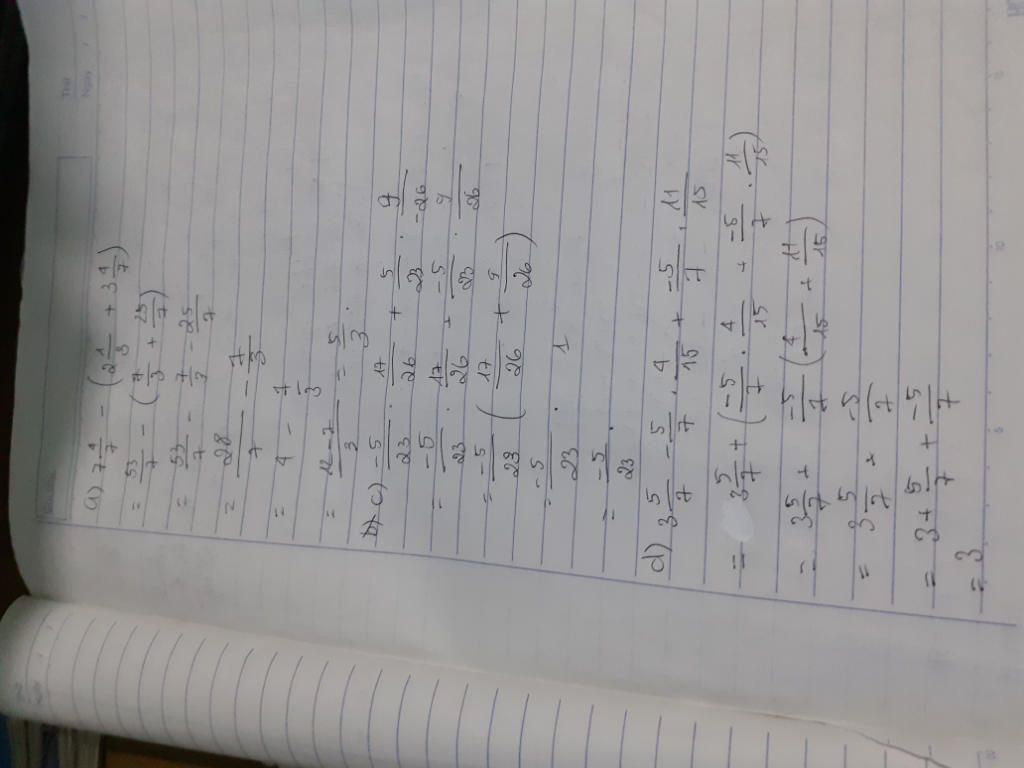 a) 7 4/7 - (2 1/3 + 3 4/7)
= 53/7 - (7/3 + 25/7)
= 53/7 - 7/3 - 25/7
= 28/7 - 7/3
= 4 - 7/3
= 12-7/3 = 5/3.
c) -5/23 . 17/26 + 5/23 . 9/-26
= -5/23 . 17/26 + -5/23 . 9/26
= -5/23 (17/26 + 9/26)
= -5/23 . 1
= -5/23
d) 3 5/7 - 5/7 . 4/15 + -5/7 . 11/15
= 3 5/7 + (-5/7 . 4/15 + -5/7 . 11/15)
= 3 5/7 + -5/7 (4/15 + 11/15)
= 3 5/7 + -5/7
= 3 + 5/7 + -5/7
= 3